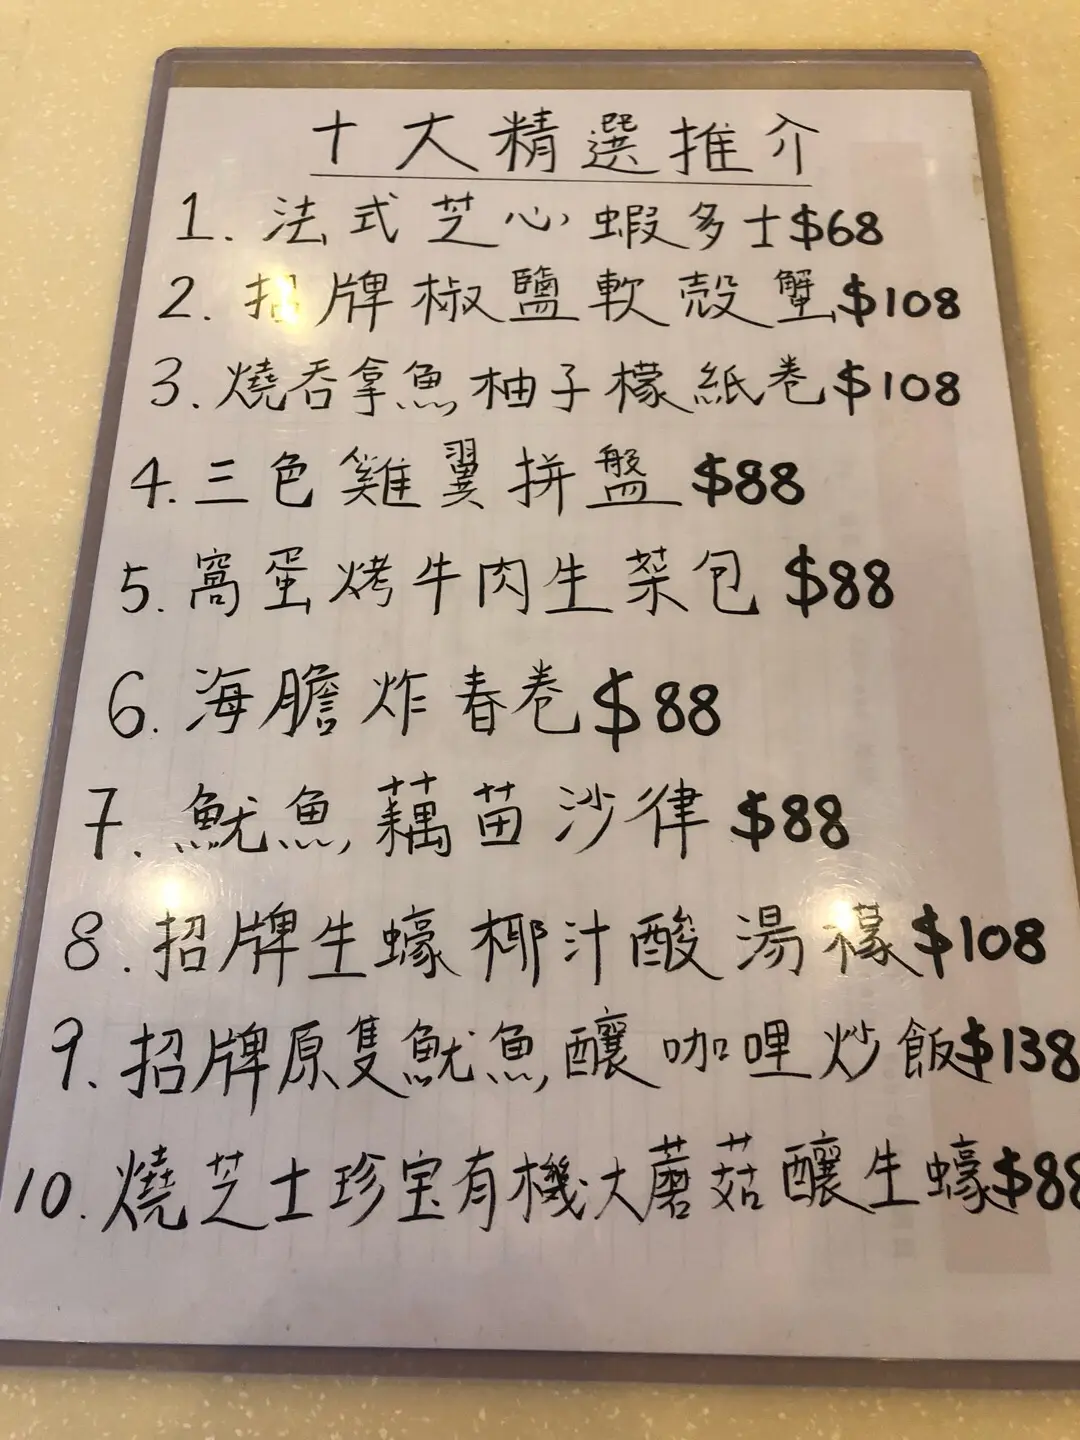 十大精選推介
1. 法式芝心蝦多士$68
2. 招牌椒鹽軟殼蟹$108
3. 燒吞拿魚柚子檬紙卷$108
4. 三色雞翼拼盤$88
5. 窩蛋烤牛肉生菜包$88
6. 海膽炸春卷$88
7. 魷魚藕苗沙律$88
8. 招牌生蠔椰汁酸湯檬$108
9. 招牌原隻魷魚釀咖哩炒飯$138
10. 燒芝士珍宝有機大蘑菇釀生蠔$88